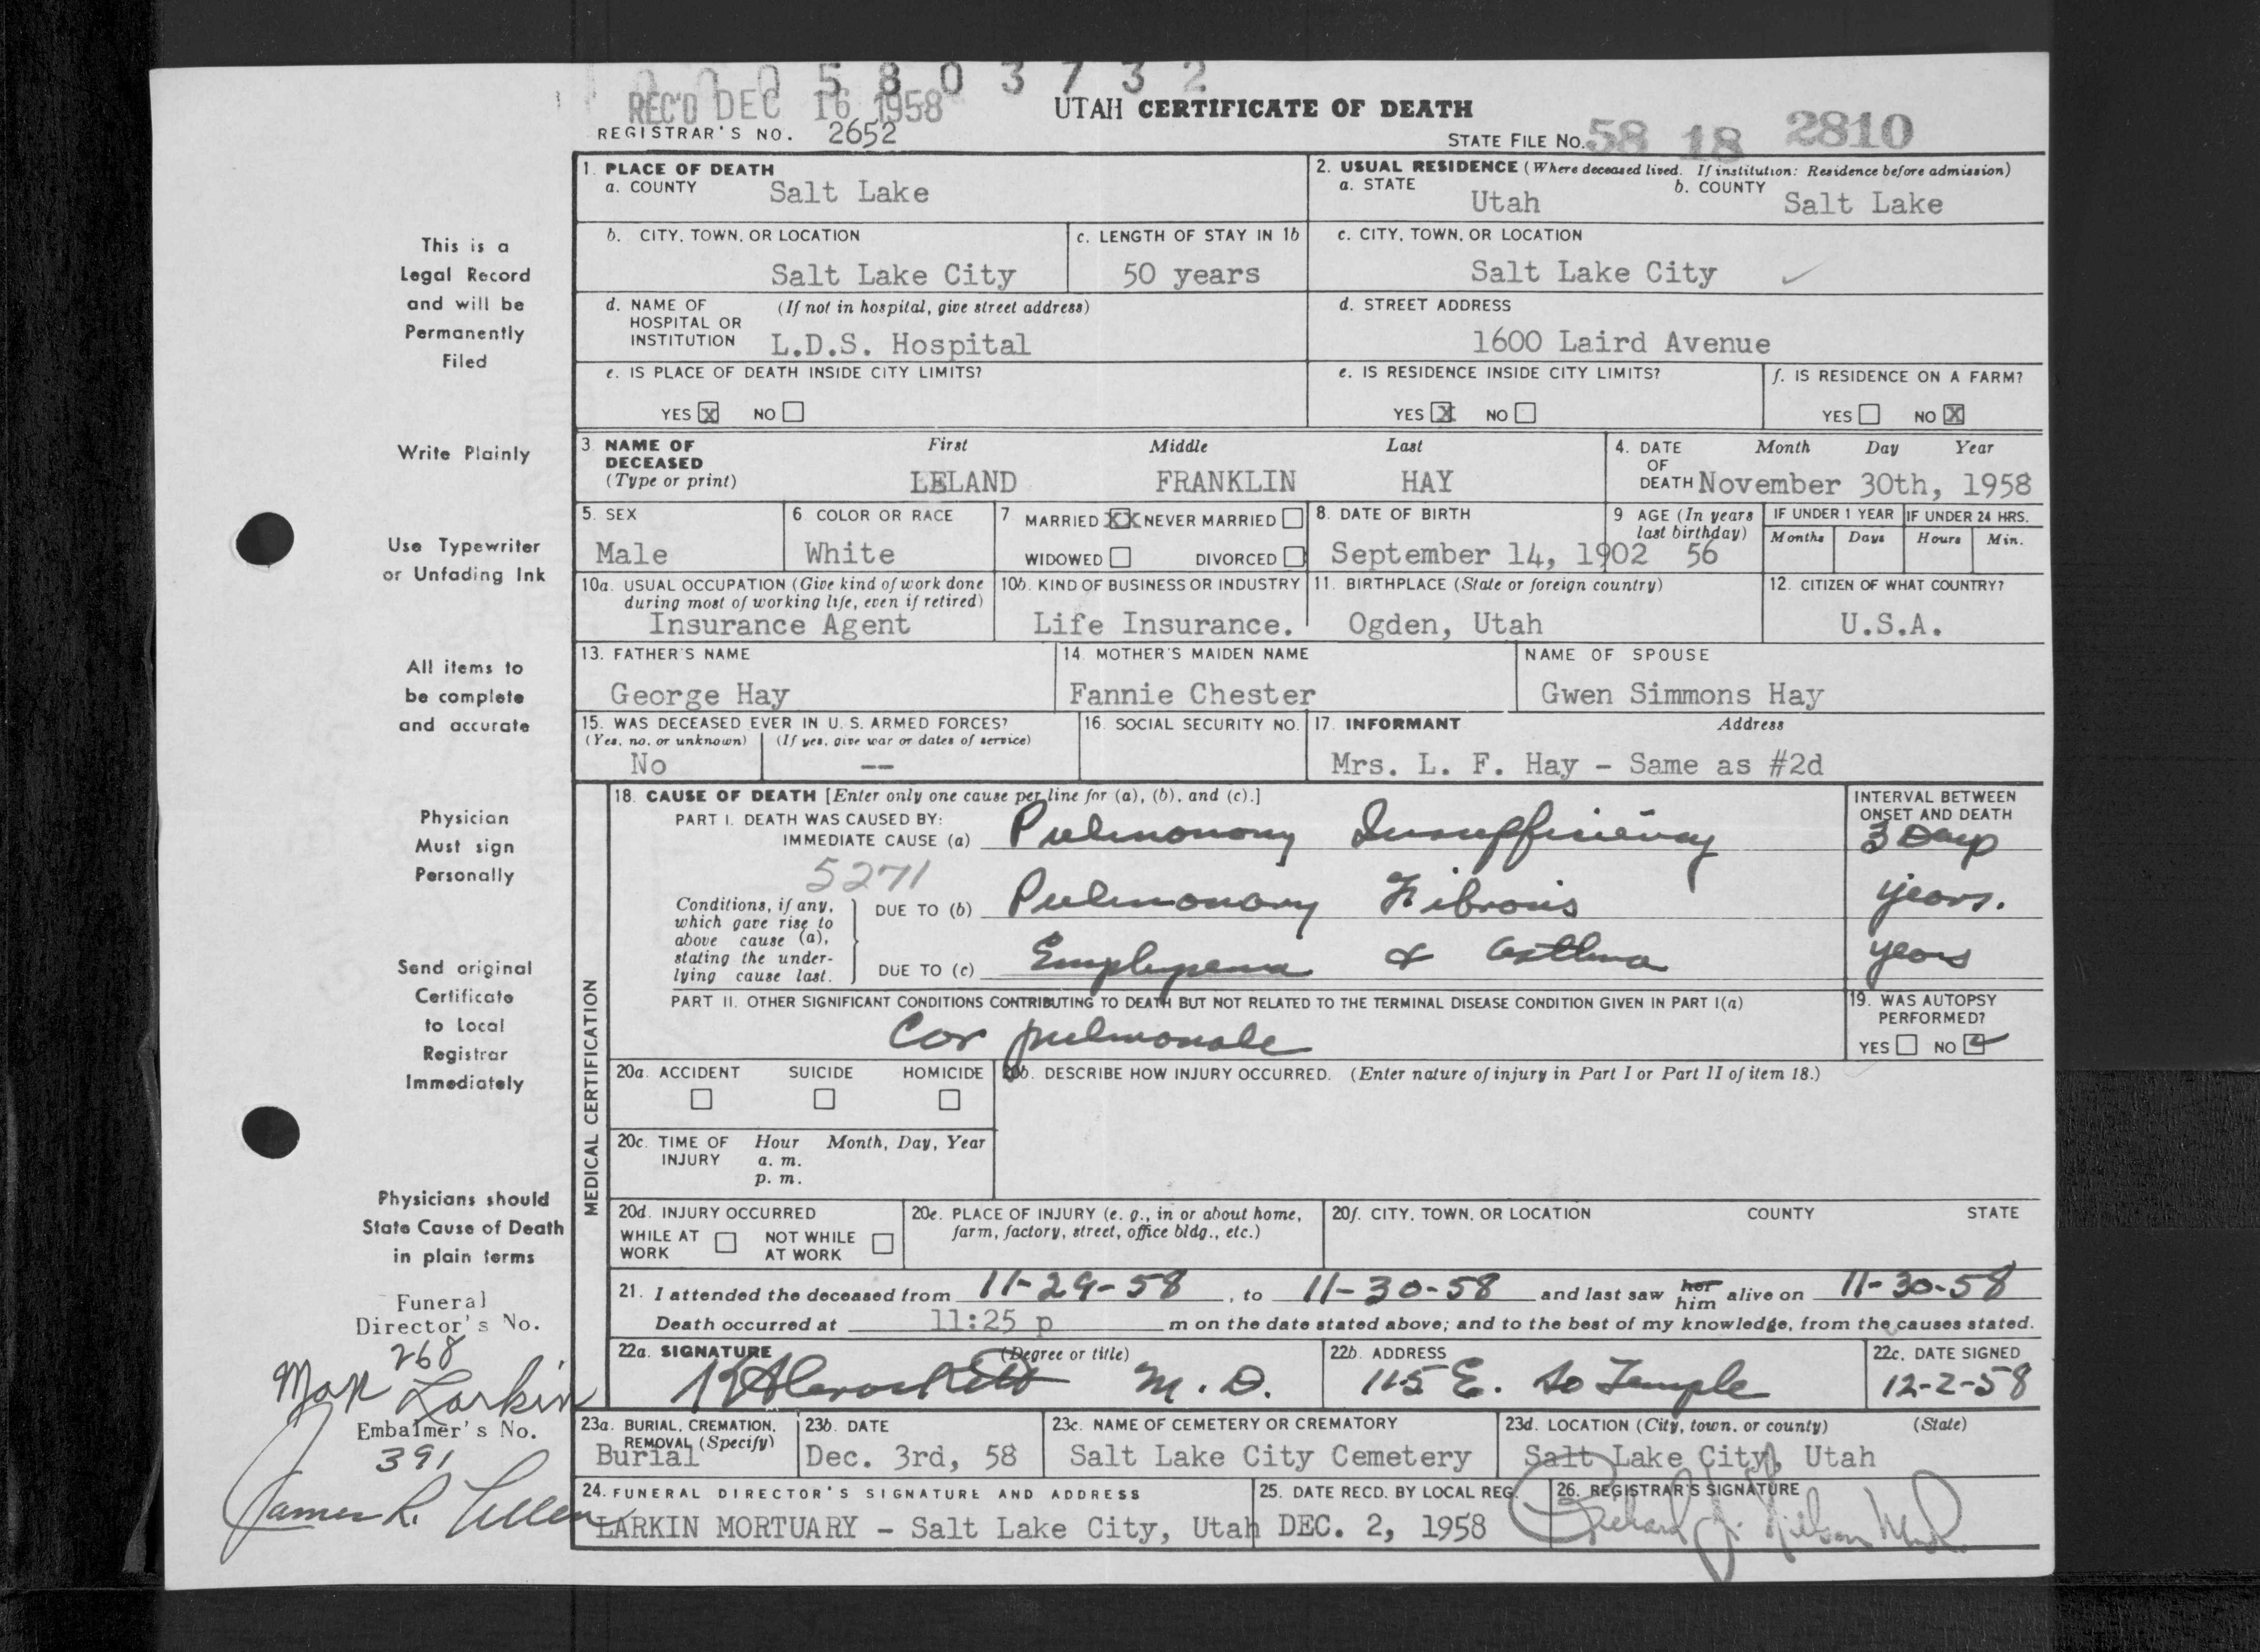 0005803732
REC'D DEC 16 1958
UTAH CERTIFICATE OF DEATH
REGISTRAR'S NO. 2652
STATE FILE NO. 58 18 2810
This is a
Legal Record
and will be
Permanently
Filed
Write Plainly
Use Typewriter
or Unfading Ink
All items to
be complete
and accurate
Physician
Must sign
Personally
Send original
Certificate
to Local
Registrar
Immediately
Physicians should
State Cause of Death
in plain terms
Funeral
Director's No.
268
Max Larkin
Embalmer's No.
391
James R.
1. PLACE OF DEATH
a. COUNTY Salt Lake
2. USUAL RESIDENCE (Where deceased lived. If institution: Residence before admission)
a. STATE Utah b. COUNTY Salt Lake
b. CITY, TOWN, OR LOCATION Salt Lake City
c. LENGTH OF STAY IN 1b 50 years
c. CITY, TOWN, OR LOCATION Salt Lake City
d. NAME OF HOSPITAL OR INSTITUTION (If not in hospital, give street address) L.D.S. Hospital
d. STREET ADDRESS 1600 Laird Avenue
e. IS PLACE OF DEATH INSIDE CITY LIMITS?
YES X NO
e. IS RESIDENCE INSIDE CITY LIMITS?
YES X NO
f. IS RESIDENCE ON A FARM?
YES NO X
3. NAME OF DECEASED (Type or print) First Middle Last
LELAND FRANKLIN HAY
4. DATE OF DEATH Month Day Year
November 30th, 1958
5. SEX Male
6. COLOR OR RACE White
7. MARRIED XX NEVER MARRIED
WIDOWED DIVORCED
8. DATE OF BIRTH September 14, 1902
9. AGE (In years last birthday) 56
IF UNDER 1 YEAR Months Days
IF UNDER 24 HRS. Hours Min.
10a. USUAL OCCUPATION (Give kind of work done during most of working life, even if retired)
Insurance Agent
10b. KIND OF BUSINESS OR INDUSTRY
Life Insurance.
11. BIRTHPLACE (State or foreign country)
Ogden, Utah
12. CITIZEN OF WHAT COUNTRY?
U.S.A.
13. FATHER'S NAME
George Hay
14. MOTHER'S MAIDEN NAME
Fannie Chester
NAME OF SPOUSE
Gwen Simmons Hay
15. WAS DECEASED EVER IN U. S. ARMED FORCES?
(Yes, no, or unknown) (If yes, give war or dates of service)
No --
16. SOCIAL SECURITY NO.
17. INFORMANT Address
Mrs. L. F. Hay - Same as #2d
MEDICAL CERTIFICATION
18. CAUSE OF DEATH [Enter only one cause per line for (a), (b), and (c).]
PART I. DEATH WAS CAUSED BY:
IMMEDIATE CAUSE (a) Pulmonary Insufficiency
INTERVAL BETWEEN ONSET AND DEATH
3 Days
5271
Conditions, if any, which gave rise to above cause (a), stating the underlying cause last.
DUE TO (b) Pulmonary Fibrosis years.
DUE TO (c) Emphysema & asthma years
PART II. OTHER SIGNIFICANT CONDITIONS CONTRIBUTING TO DEATH BUT NOT RELATED TO THE TERMINAL DISEASE CONDITION GIVEN IN PART I(a)
Cor pulmonale
19. WAS AUTOPSY PERFORMED?
YES NO
20a. ACCIDENT SUICIDE HOMICIDE
20b. DESCRIBE HOW INJURY OCCURRED. (Enter nature of injury in Part I or Part II of item 18.)
20c. TIME OF INJURY Hour Month, Day, Year
a. m.
p. m.
20d. INJURY OCCURRED
WHILE AT WORK NOT WHILE AT WORK
20e. PLACE OF INJURY (e. g., in or about home, farm, factory, street, office bldg., etc.)
20f. CITY, TOWN, OR LOCATION COUNTY STATE
21. I attended the deceased from 11-29-58, to 11-30-58 and last saw her him alive on 11-30-58
Death occurred at 11:25 p m on the date stated above; and to the best of my knowledge, from the causes stated.
22a. SIGNATURE (Degree or title)
M. D.
22b. ADDRESS
115 E. So Temple
22c. DATE SIGNED
12-2-58
23a. BURIAL, CREMATION, REMOVAL (Specify)
Burial
23b. DATE
Dec. 3rd, 58
23c. NAME OF CEMETERY OR CREMATORY
Salt Lake City Cemetery
23d. LOCATION (City, town, or county) (State)
Salt Lake City, Utah
24. FUNERAL DIRECTOR'S SIGNATURE AND ADDRESS
LARKIN MORTUARY - Salt Lake City, Utah
25. DATE RECD. BY LOCAL REG.
DEC. 2, 1958
26. REGISTRAR'S SIGNATURE
Richard J. Nilson